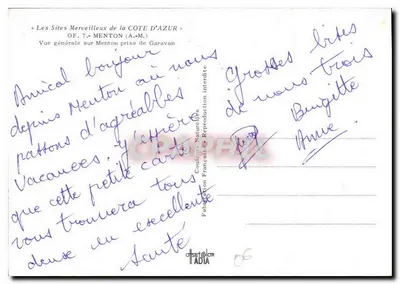 "Les Sites Merveilleux de la COTE D'AZUR"
OF. 7.- MENTON (A.-M.)
Vue générale sur Menton prise de Garavan
Amical bonjour
depuis Menton où nous
passons d'agréables
Vacances. J'espère
que cette petite carte
vous trouvera tous
dans un excellente
Santé
Grosses bises
de nous trois
Brigitte
Anne
Fabrication Française - Reproduction interdite
06